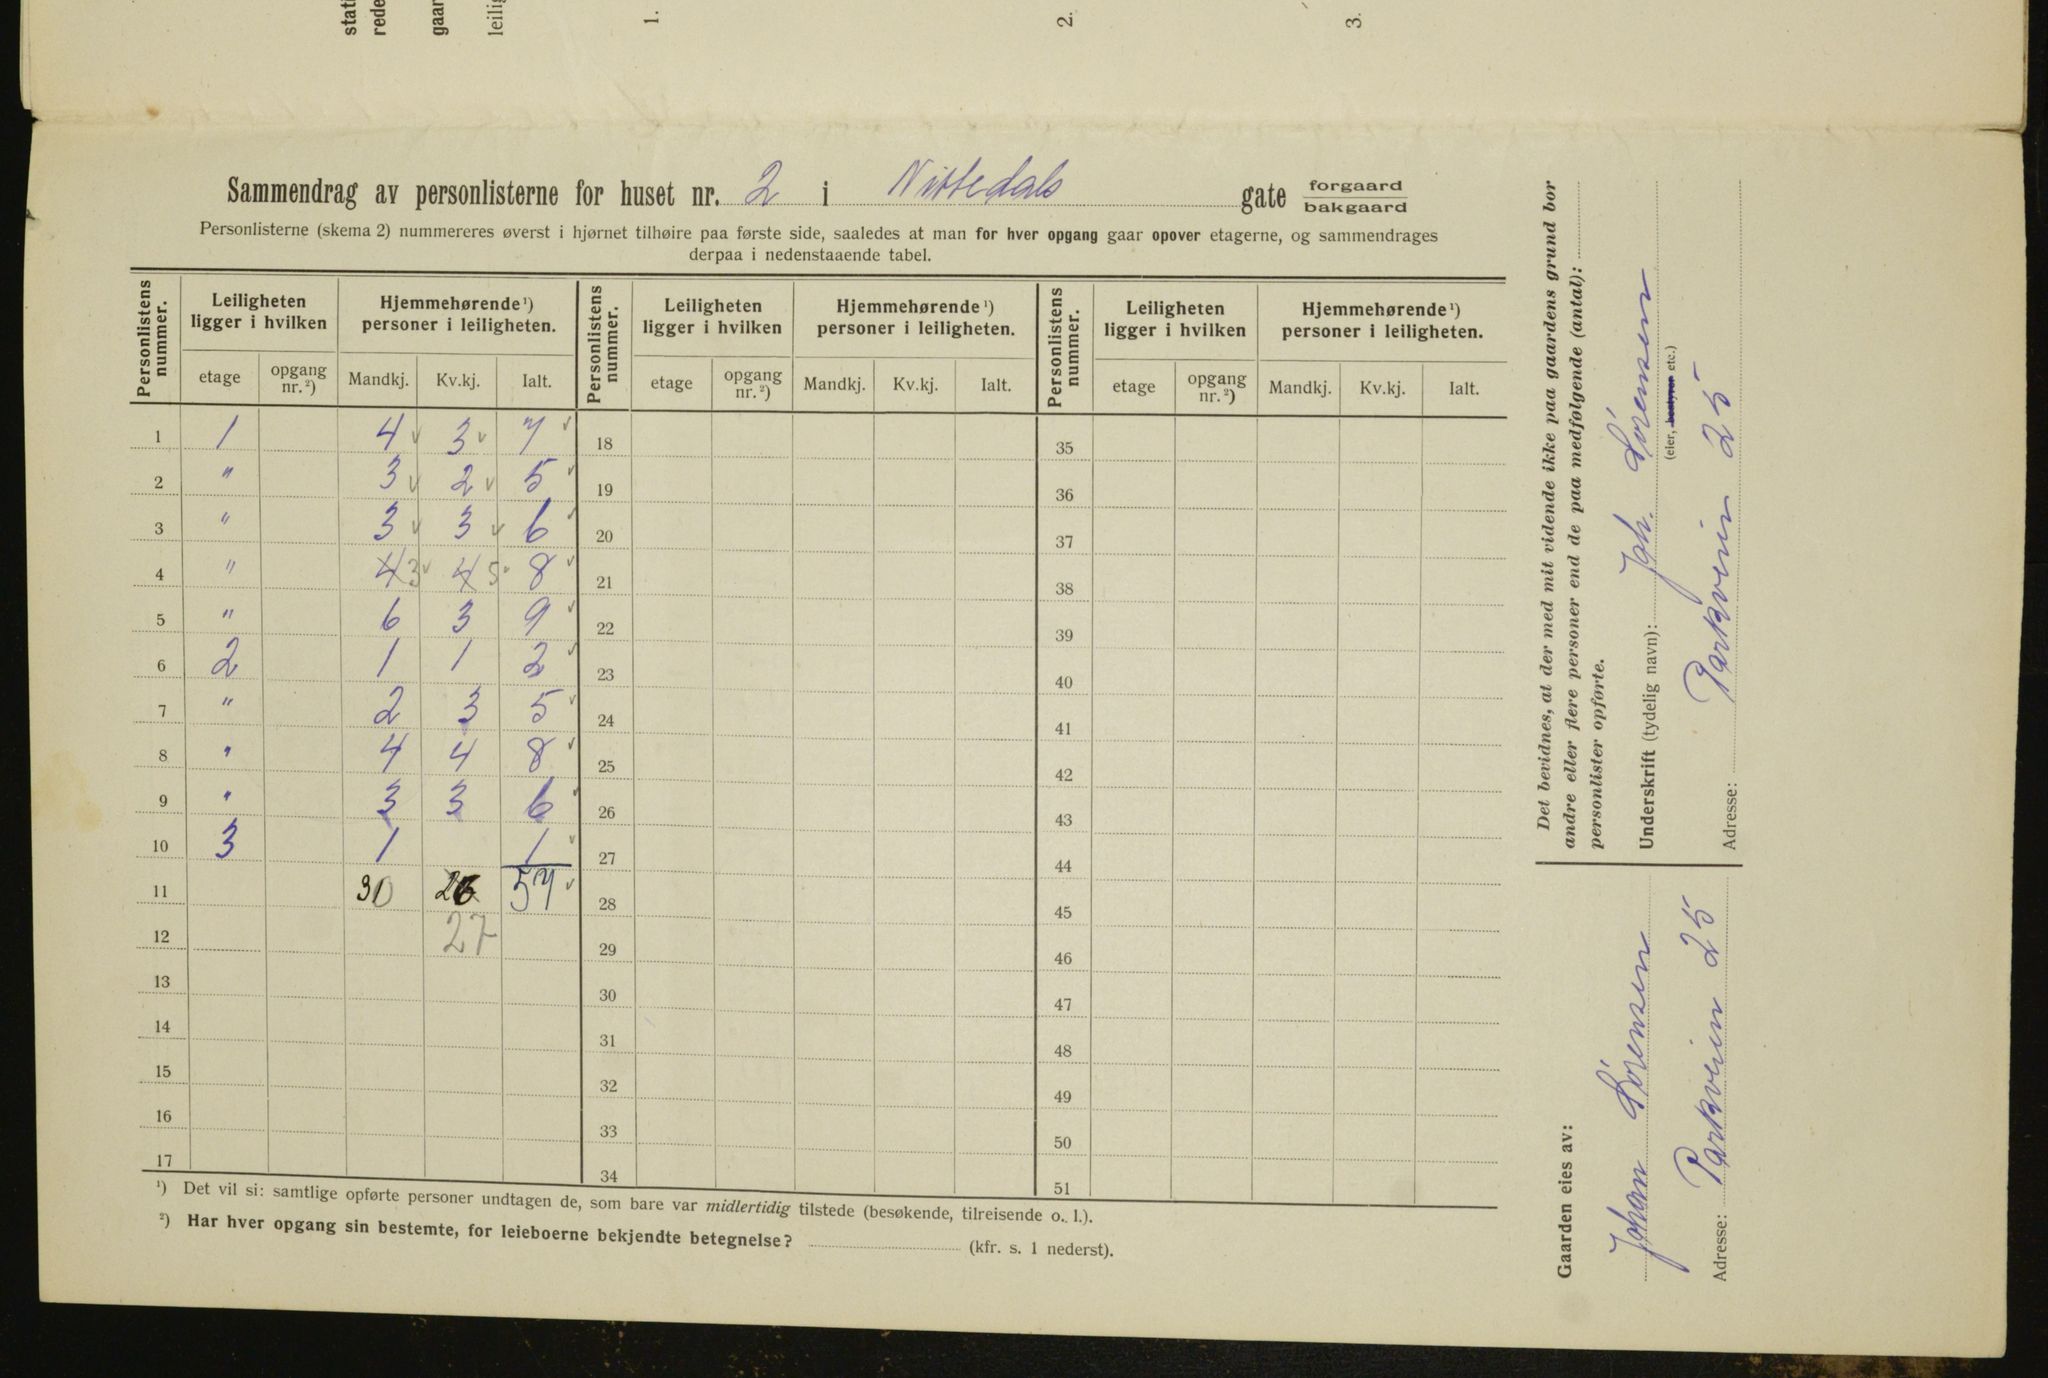 stati
rede
gaar
leilig
1.
2.
3.
Sammendrag av personlisterne for huset nr. 2 i Nittedals gate forgaard
bakgaard
Personlisterne (skema 2) nummereres øverst i hjørnet tilhøire paa første side, saaledes at man for hver opgang gaar opover etagerne, og sammendrages
derpaa i nedenstaaende tabel.
Personlistens nummer. Leiligheten ligger i hvilken Hjemmehørende ¹) personer i leiligheten. Personlistens nummer. Leiligheten ligger i hvilken Hjemmehørende ¹) personer i leiligheten. Personlistens nummer. Leiligheten ligger i hvilken Hjemmehørende ¹) personer i leiligheten.
etage opgang nr. ²) Mandkj. Kv.kj. Ialt. etage opgang nr. ²) Mandkj. Kv.kj. Ialt. etage opgang nr. ²) Mandkj. Kv.kj. Ialt.
1 1 4 3 7 18 35
2 " 3 2 5 19 36
3 " 3 3 6 20 37
4 " 4 3 4 5 8 21 38
5 " 6 3 9 22 39
6 2 1 1 2 23 40
7 " 2 3 5 24 41
8 " 4 4 8 25 42
9 " 3 3 6 26 43
10 3 1 1 27 44
11 30 26 57 28 45
12 27 29 46
13 30 47
14 31 48
15 32 49
16 33 50
17 34 51
¹) Det vil si: samtlige opførte personer undtagen de, som bare var midlertidig tilstede (besøkende, tilreisende o. l.).
²) Har hver opgang sin bestemte, for leieboerne bekjendte betegnelse? (kfr. s. 1 nederst).
Det bevidnes, at der med mit vidende ikke paa gaardens grund bor
andre eller flere personer end de paa medfølgende (antal):
personlister opførte.
Underskrift (tydelig navn): Joh. Sörensen
(eier, bestyrer etc.)
Adresse: Parkveien 25
Gaarden eies av:
Johan Sörensen
Adresse: Parkveien 25